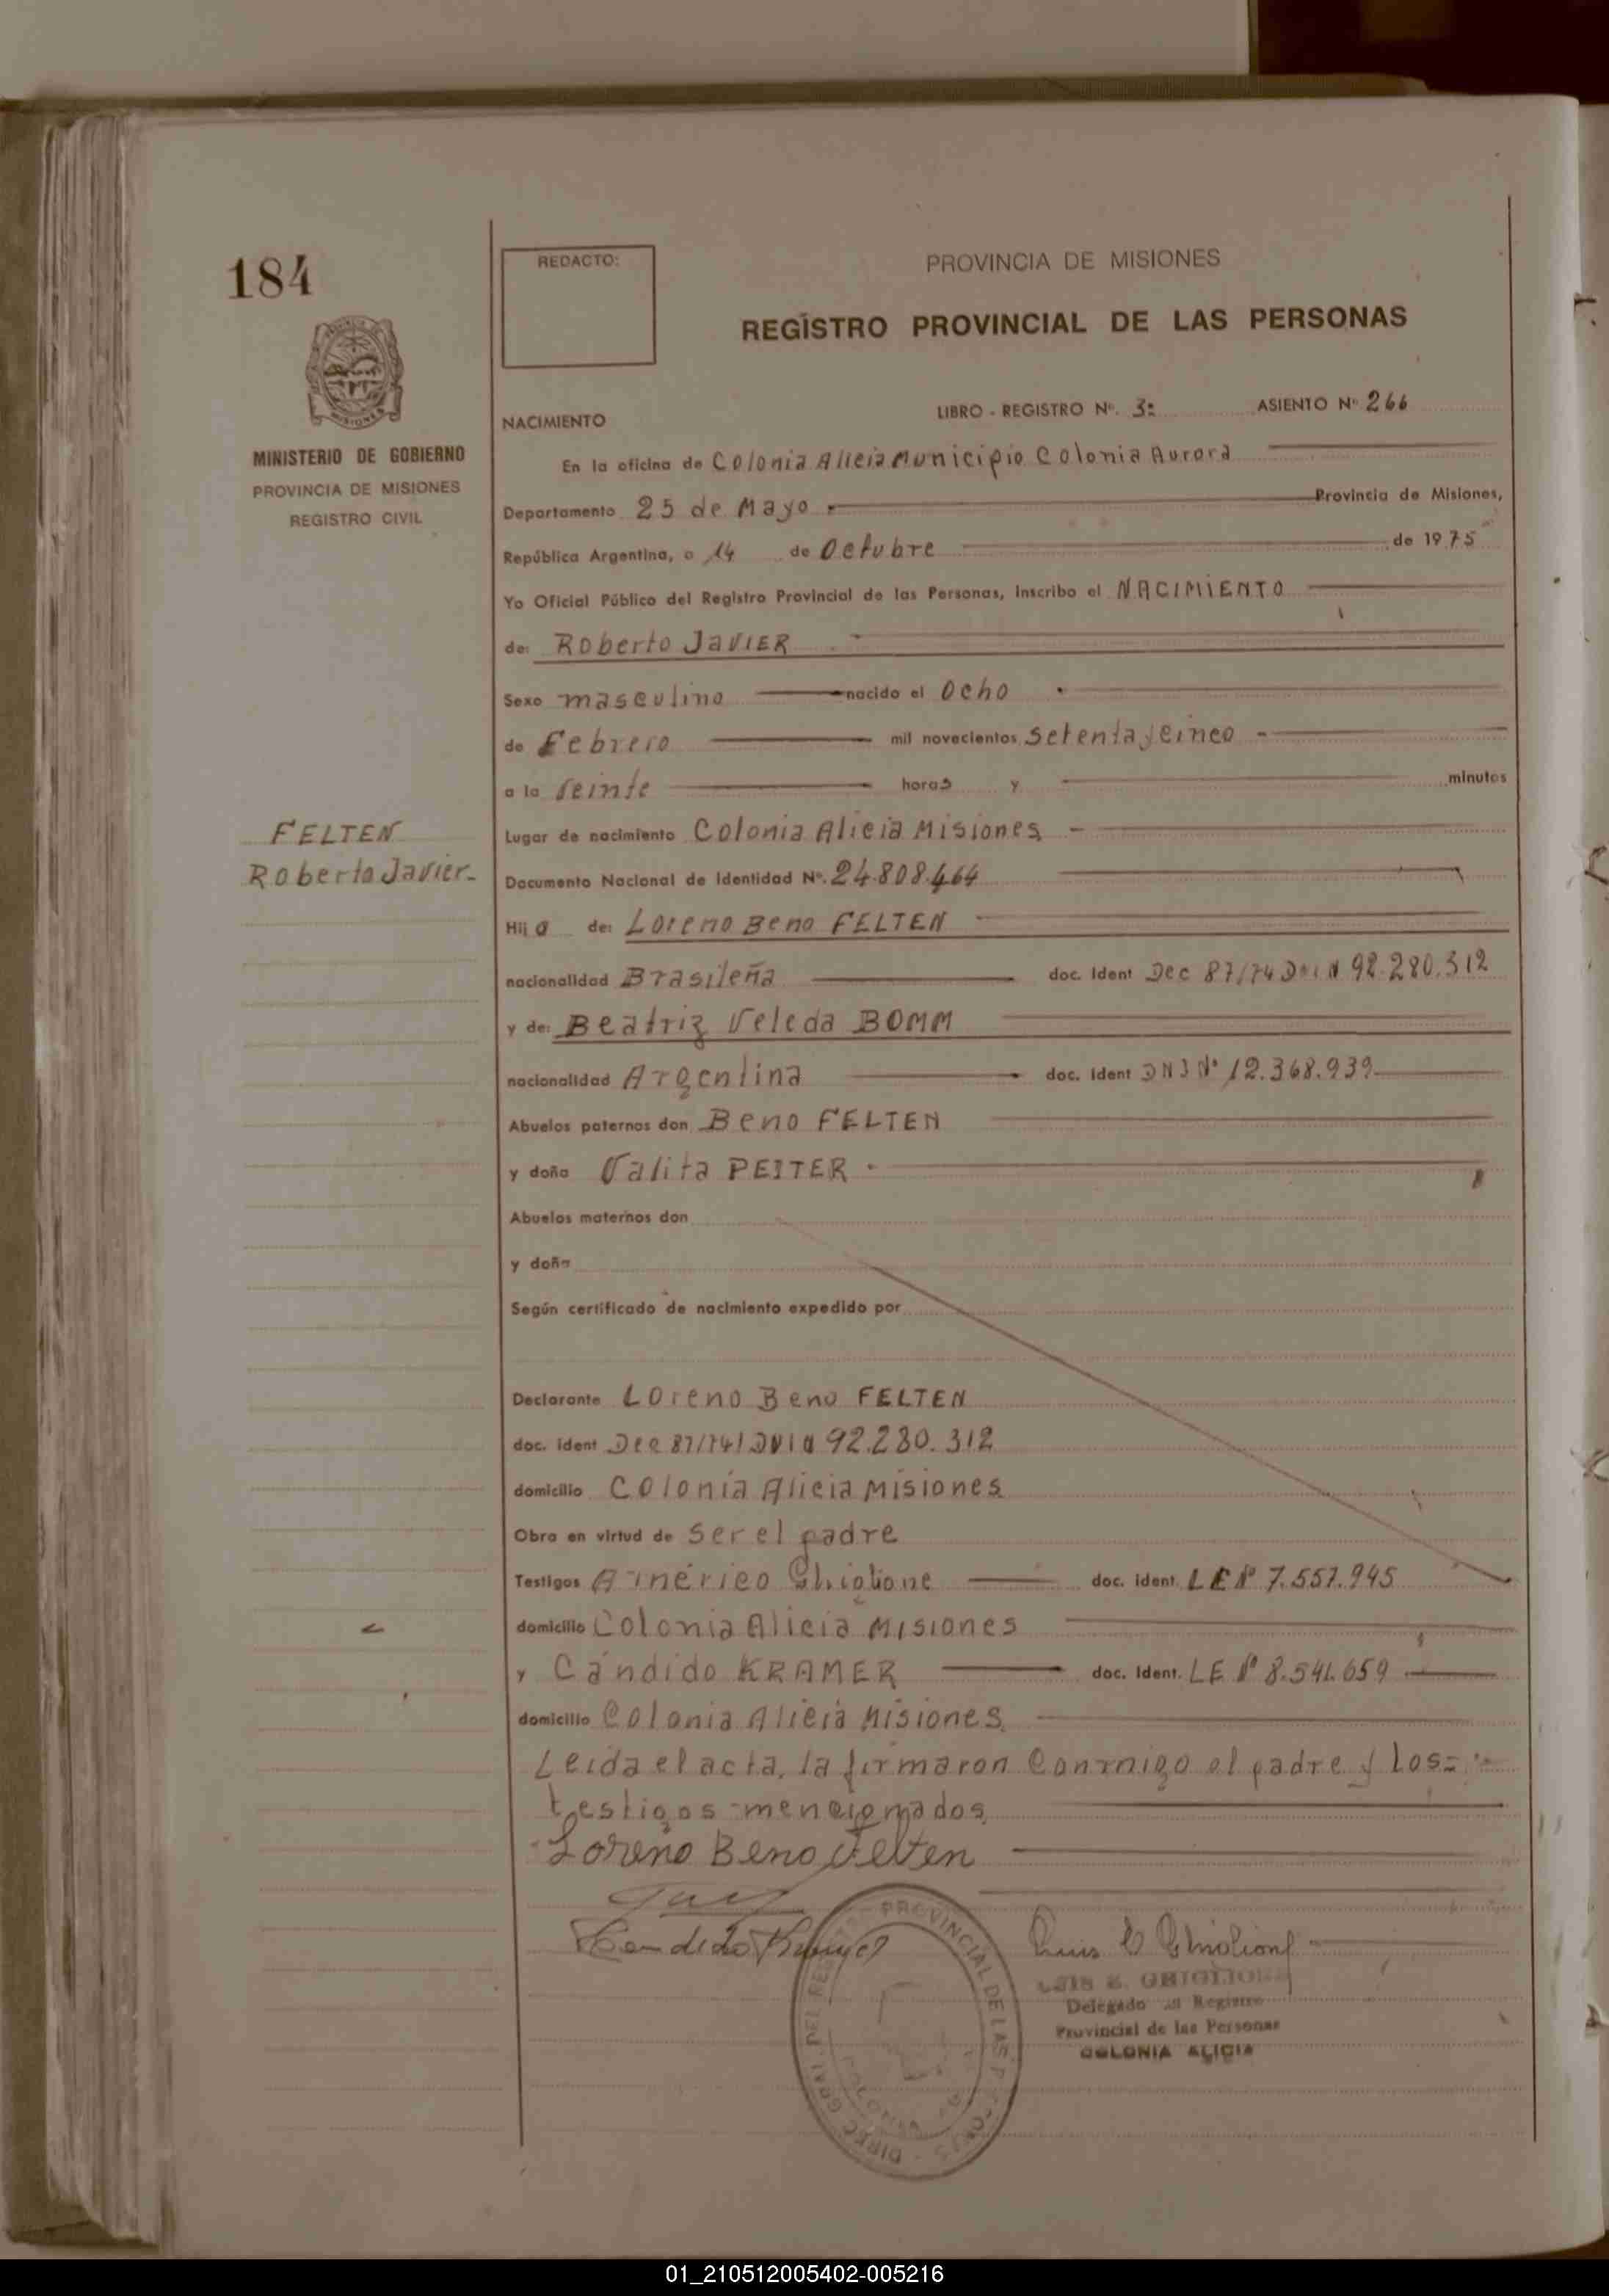 184
REDACTO:
PROVINCIA DE MISIONES
REGISTRO PROVINCIAL DE LAS PERSONAS
MISIONES
MINISTERIO DE GOBIERNO
PROVINCIA DE MISIONES
REGISTRO CIVIL
NACIMIENTO
LIBRO - REGISTRO Nº. 3: ASIENTO Nº 266
En la oficina de Colonia Alicia Municipio Colonia Aurora
Departamento 25 de Mayo Provincia de Misiones,
República Argentina, a 14 de Octubre de 1975
Yo Oficial Público del Registro Provincial de las Personas, inscribo el NACIMIENTO
de: Roberto JaVIER
Sexo masculino nacido el Ocho
de Febrero mil novecientos setenta y cinco
a la Veinte horas y minutos
FELTEN
Roberto Javier-
Lugar de nacimiento Colonia Alicia Misiones
Documento Nacional de Identidad Nº. 24.808.464
Hijo de: Loreno Beno FELTEN
nacionalidad Brasileña doc. Ident Dec 87/74 DNI N 92.280.312
y de: Beatriz Veleda BOMM
nacionalidad Argentina doc. Ident DNI Nº 12.368.939
Abuelos paternos don Beno FELTEN
y doña Valita PEITER
Abuelos maternos don
y doña
Según certificado de nacimiento expedido por
Declarante Loreno Beno FELTEN
doc. ident Dec 87/74 DNI N 92.280.312
domicilio Colonia Alicia Misiones
Obra en virtud de Ser el padre
Testigos Américo Ghiglione doc. ident. LE Nº 7.557.945
domicilio Colonia Alicia Misiones
y Cándido KRAMER doc. Ident. LE Nº 8.541.659
domicilio Colonia Alicia Misiones
Leida el acta, la firmaron Conmigo el padre y los=
testigos mencionados
Loreno Beno Felten
Candido Kramer
Luis E Ghiglione
LUIS E. GHIGLIONE
Delegado del Registro
Provincial de las Personas
COLONIA ALICIA
DIREC. GRAL. DEL REG. PROVINCIAL DE LAS PERSONAS
01_210512005402-005216